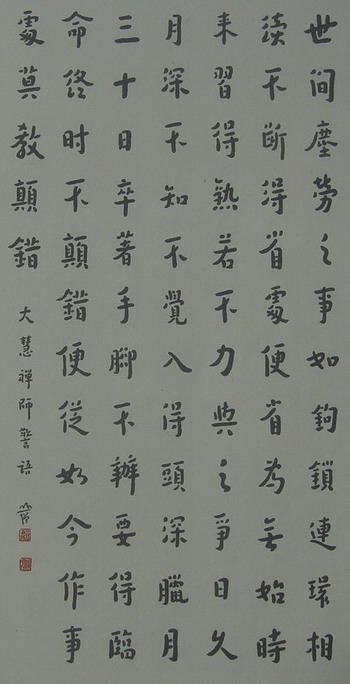 世間塵勞之事如鉤鎖連環相
續不斷得省處便省為無始時
来習得熟若不力與之爭日久
月深不知不覺入得頭深臘月
三十日卒著手腳不辦要得臨
命終时不顛錯便從如今作事
處莫教顛錯
大慧禪師警語